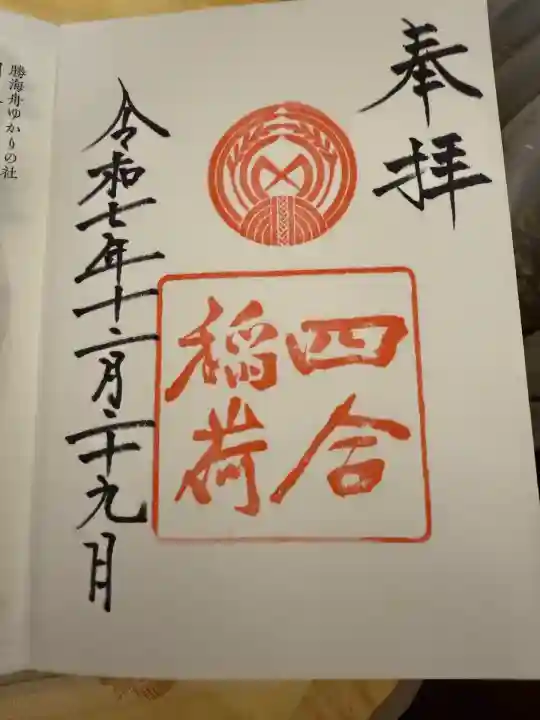 奉拝
四合
稲荷
令和七年十二月二十九日
勝海舟ゆかりの社